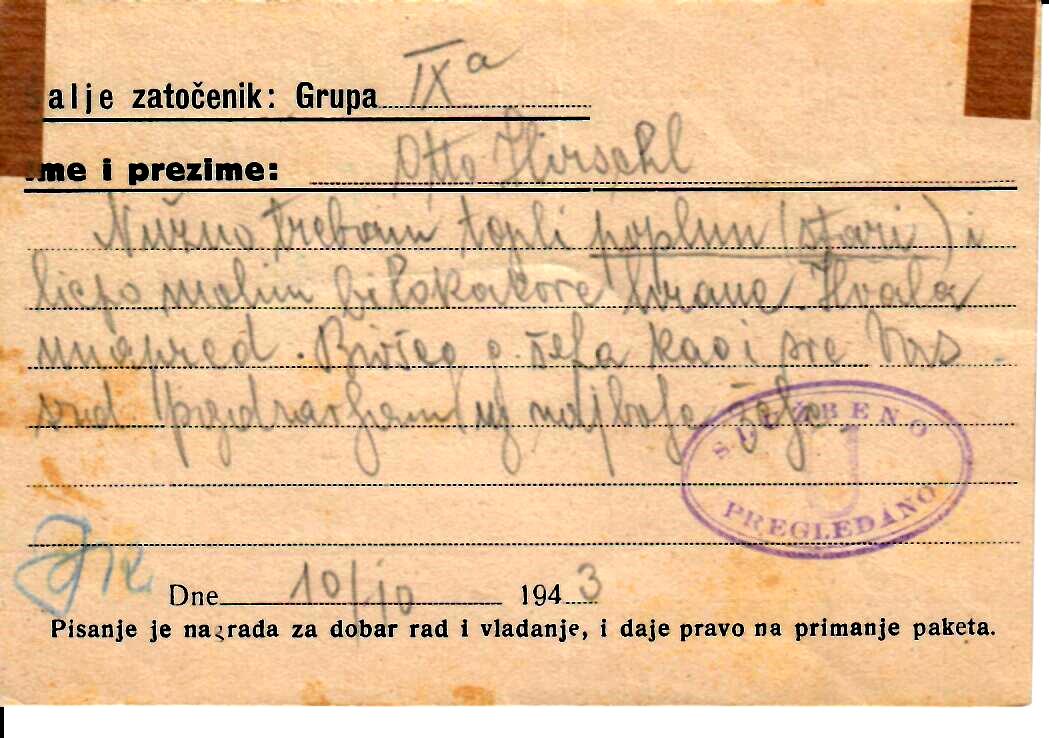 alje zatočenik: Grupa IXa
me i prezime: Otto Hirschl
Nužno trebam topli poplun (stari) i
molim bilokakove hrane. Hvala
unapred. kao i sve Vas
pozdravljam uz najbolje želje
SLUŽBENO
U
PREGLEDANO
Dne 10/10 1943
Pisanje je nagrada za dobar rad i vladanje, i daje pravo na primanje paketa.